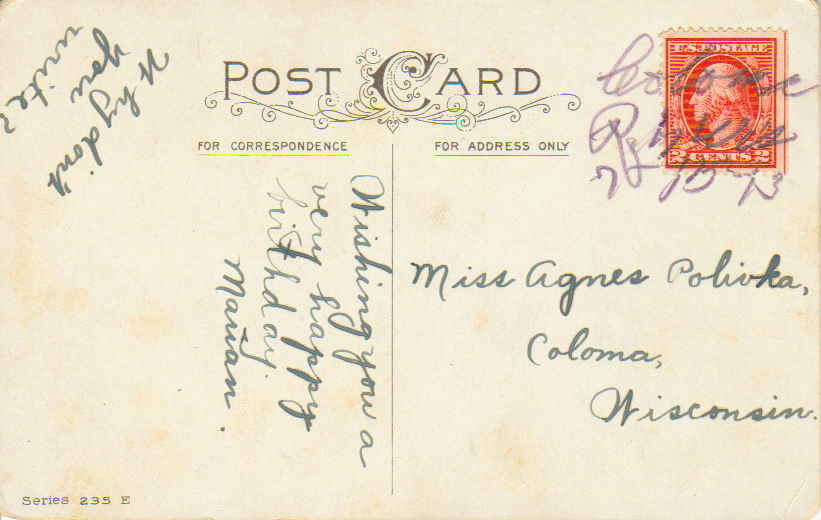 Why don't
you
write?
POST CARD
FOR CORRESPONDENCE
FOR ADDRESS ONLY
U.S. POSTAGE
2 CENTS 2
7 15-13
Wishing you a
very happy
birthday.
Marian.
Miss Agnes Polivka,
Coloma,
Wisconsin.
Series 235 E